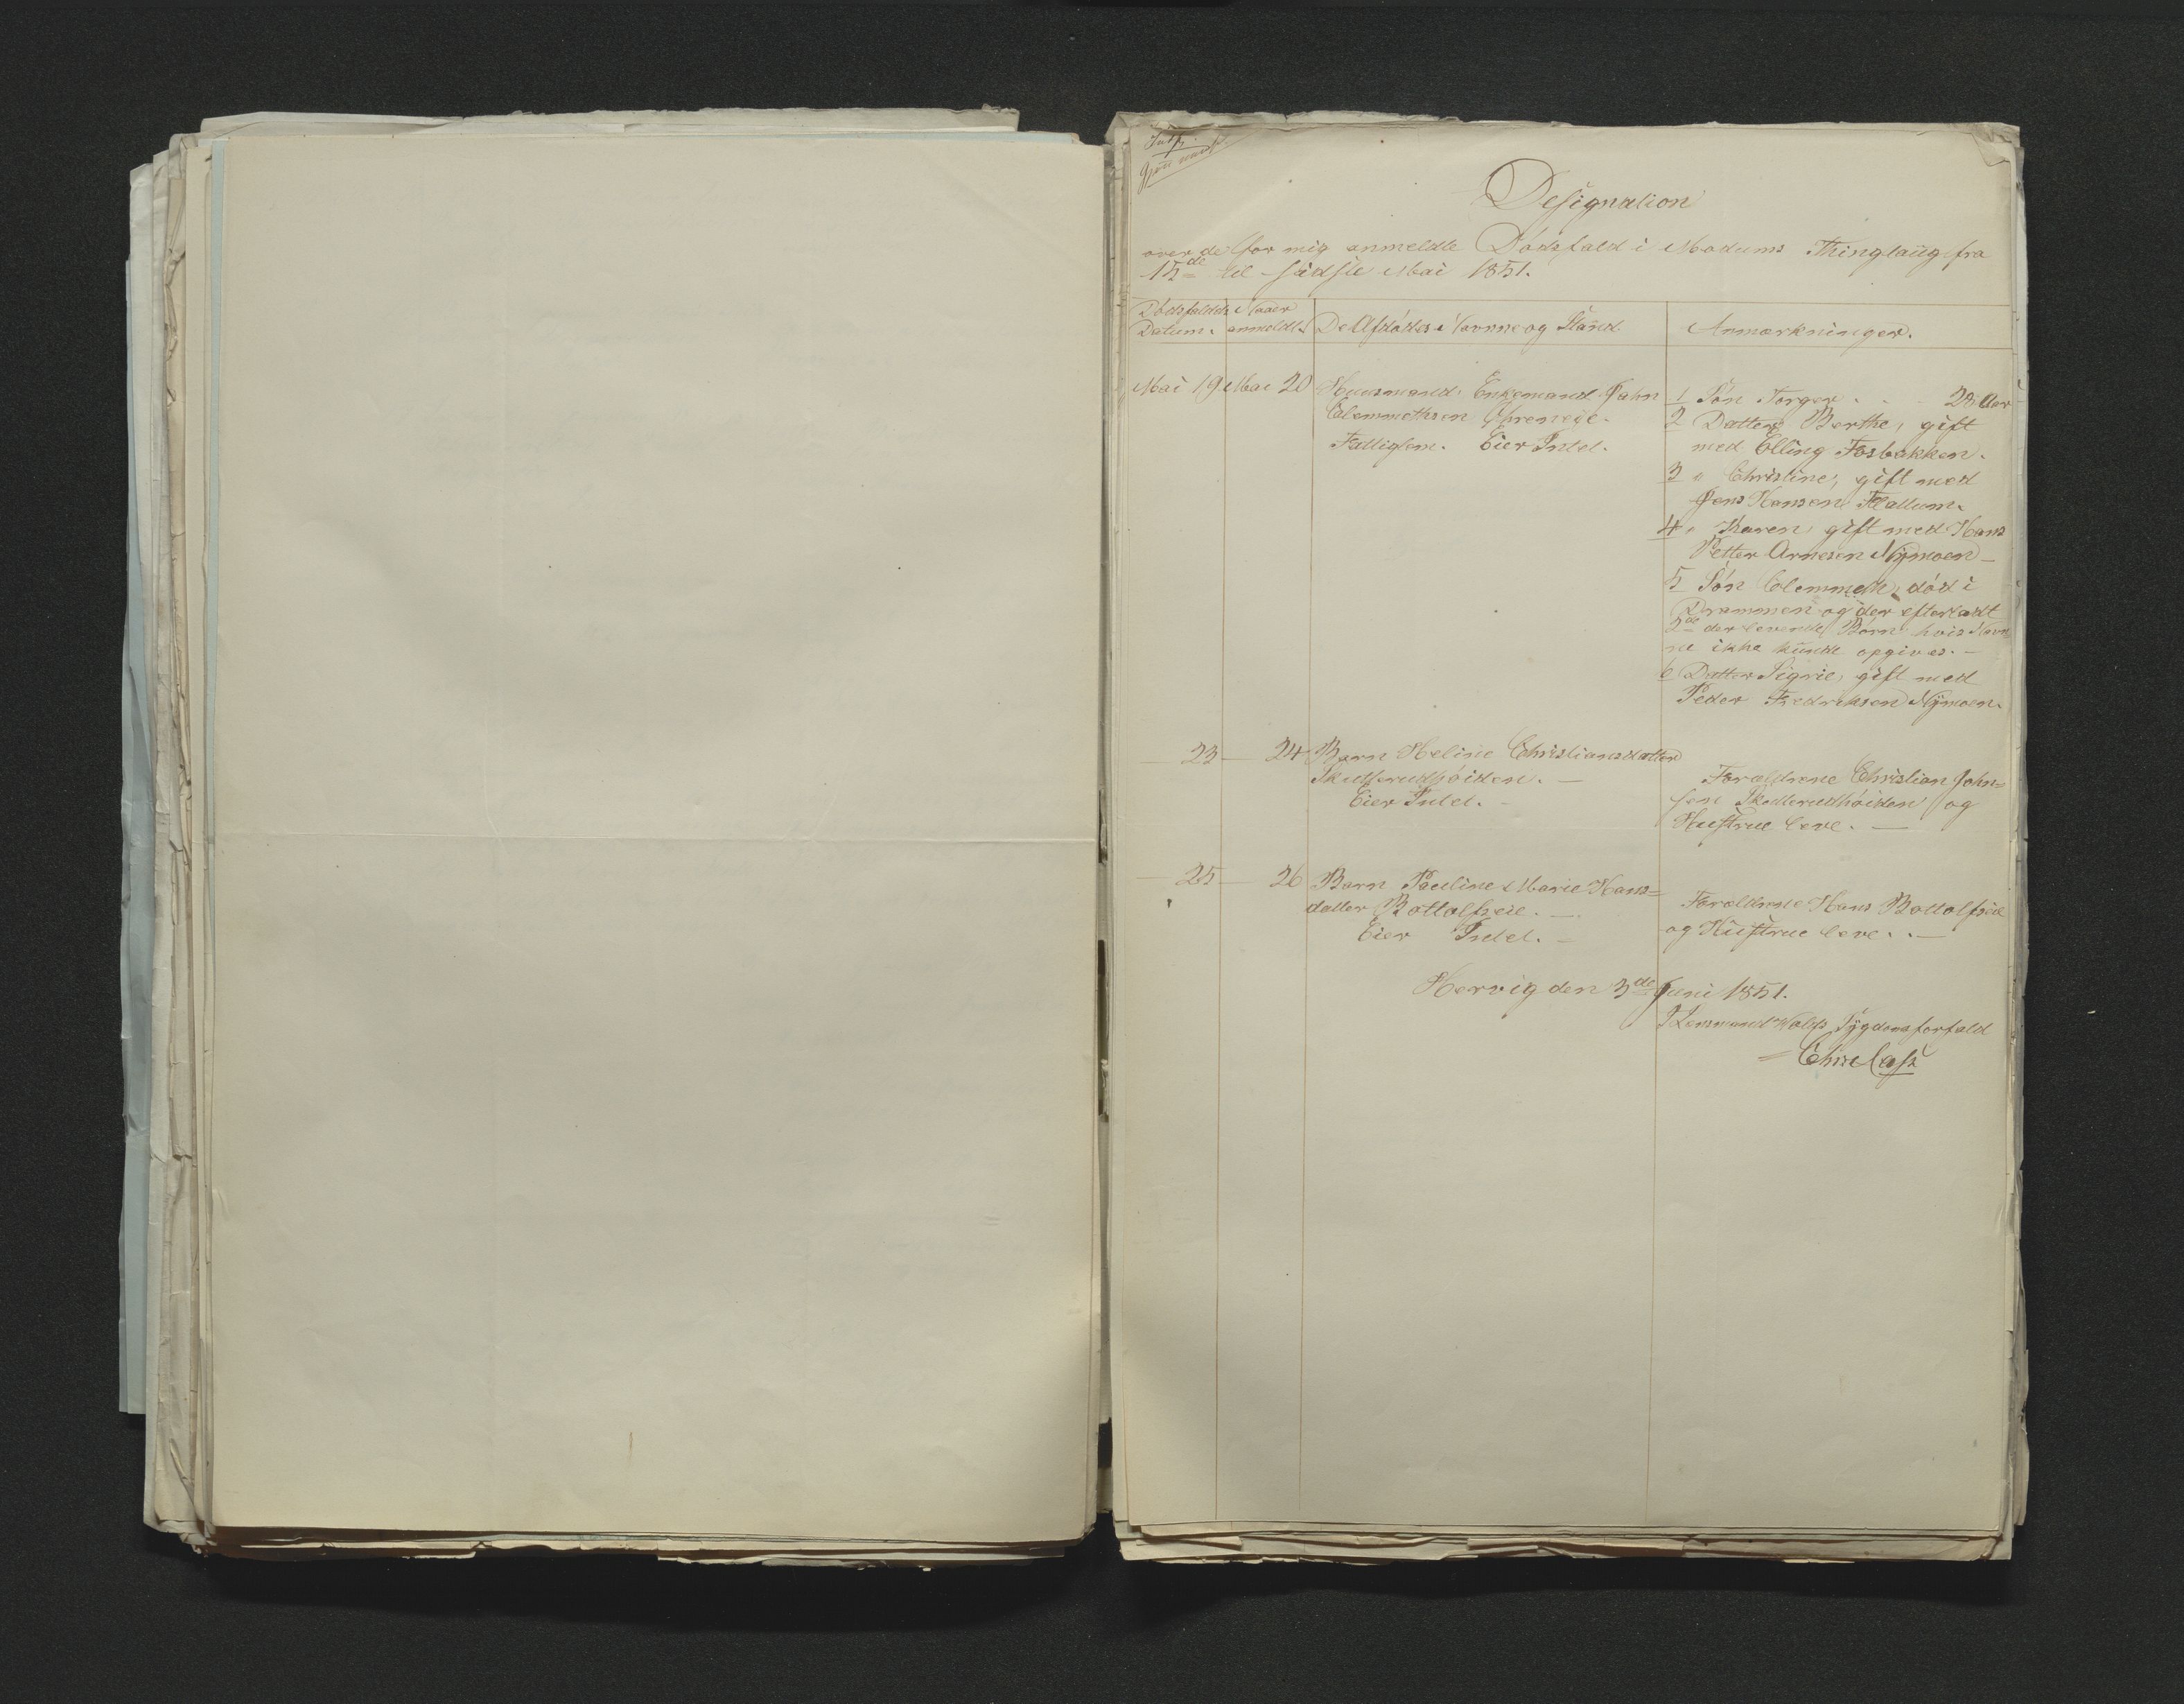 Designation
over de for mig anmeldte Dødsfald i Modums Thinglaug fra
15de til sidste Mai 1851.
Dødsfaldets Datum.
Naar anmeldt.
De Afdødes Navne og Stand
Anmærkninger.
Mai 19 Mai 20 Huusmand, Enkemand John
Clemmethsen
Fattiglem. Eier Intet.
1 Søn Torger . . . 28 Aar
2 Datter Berthe, gift
med Elling Fosbakken.
3 " Christine, gift med
Jens Hansen
4 " Karen, gift med Hans
Petter Arnesen Nymoen
5 Søn Clemmeth, død i
Drammen og der efterladt
2de der levende Børn hvis Nav-
ne ikke kunde opgives. —
6 Datter Sigrie, gift med
Peder Fredriksen Nymoen.
— 23 — 24 Barn Heline Christiansdatter
Skutterudhøiden. —
Eier Intet. —
Forældrene Christian John=
sen Skutterudhøiden og
Hustrue leve. —
— 25 — 26 Barn Pauline Marie Hans=
datter Bottolfseie. —
Eier Intet. —
Forældrene Hans Bottolfseie
og Hustrue leve. . —
Hervig den 3de Juni 1851.
I Lensmand Sygdomsforfald